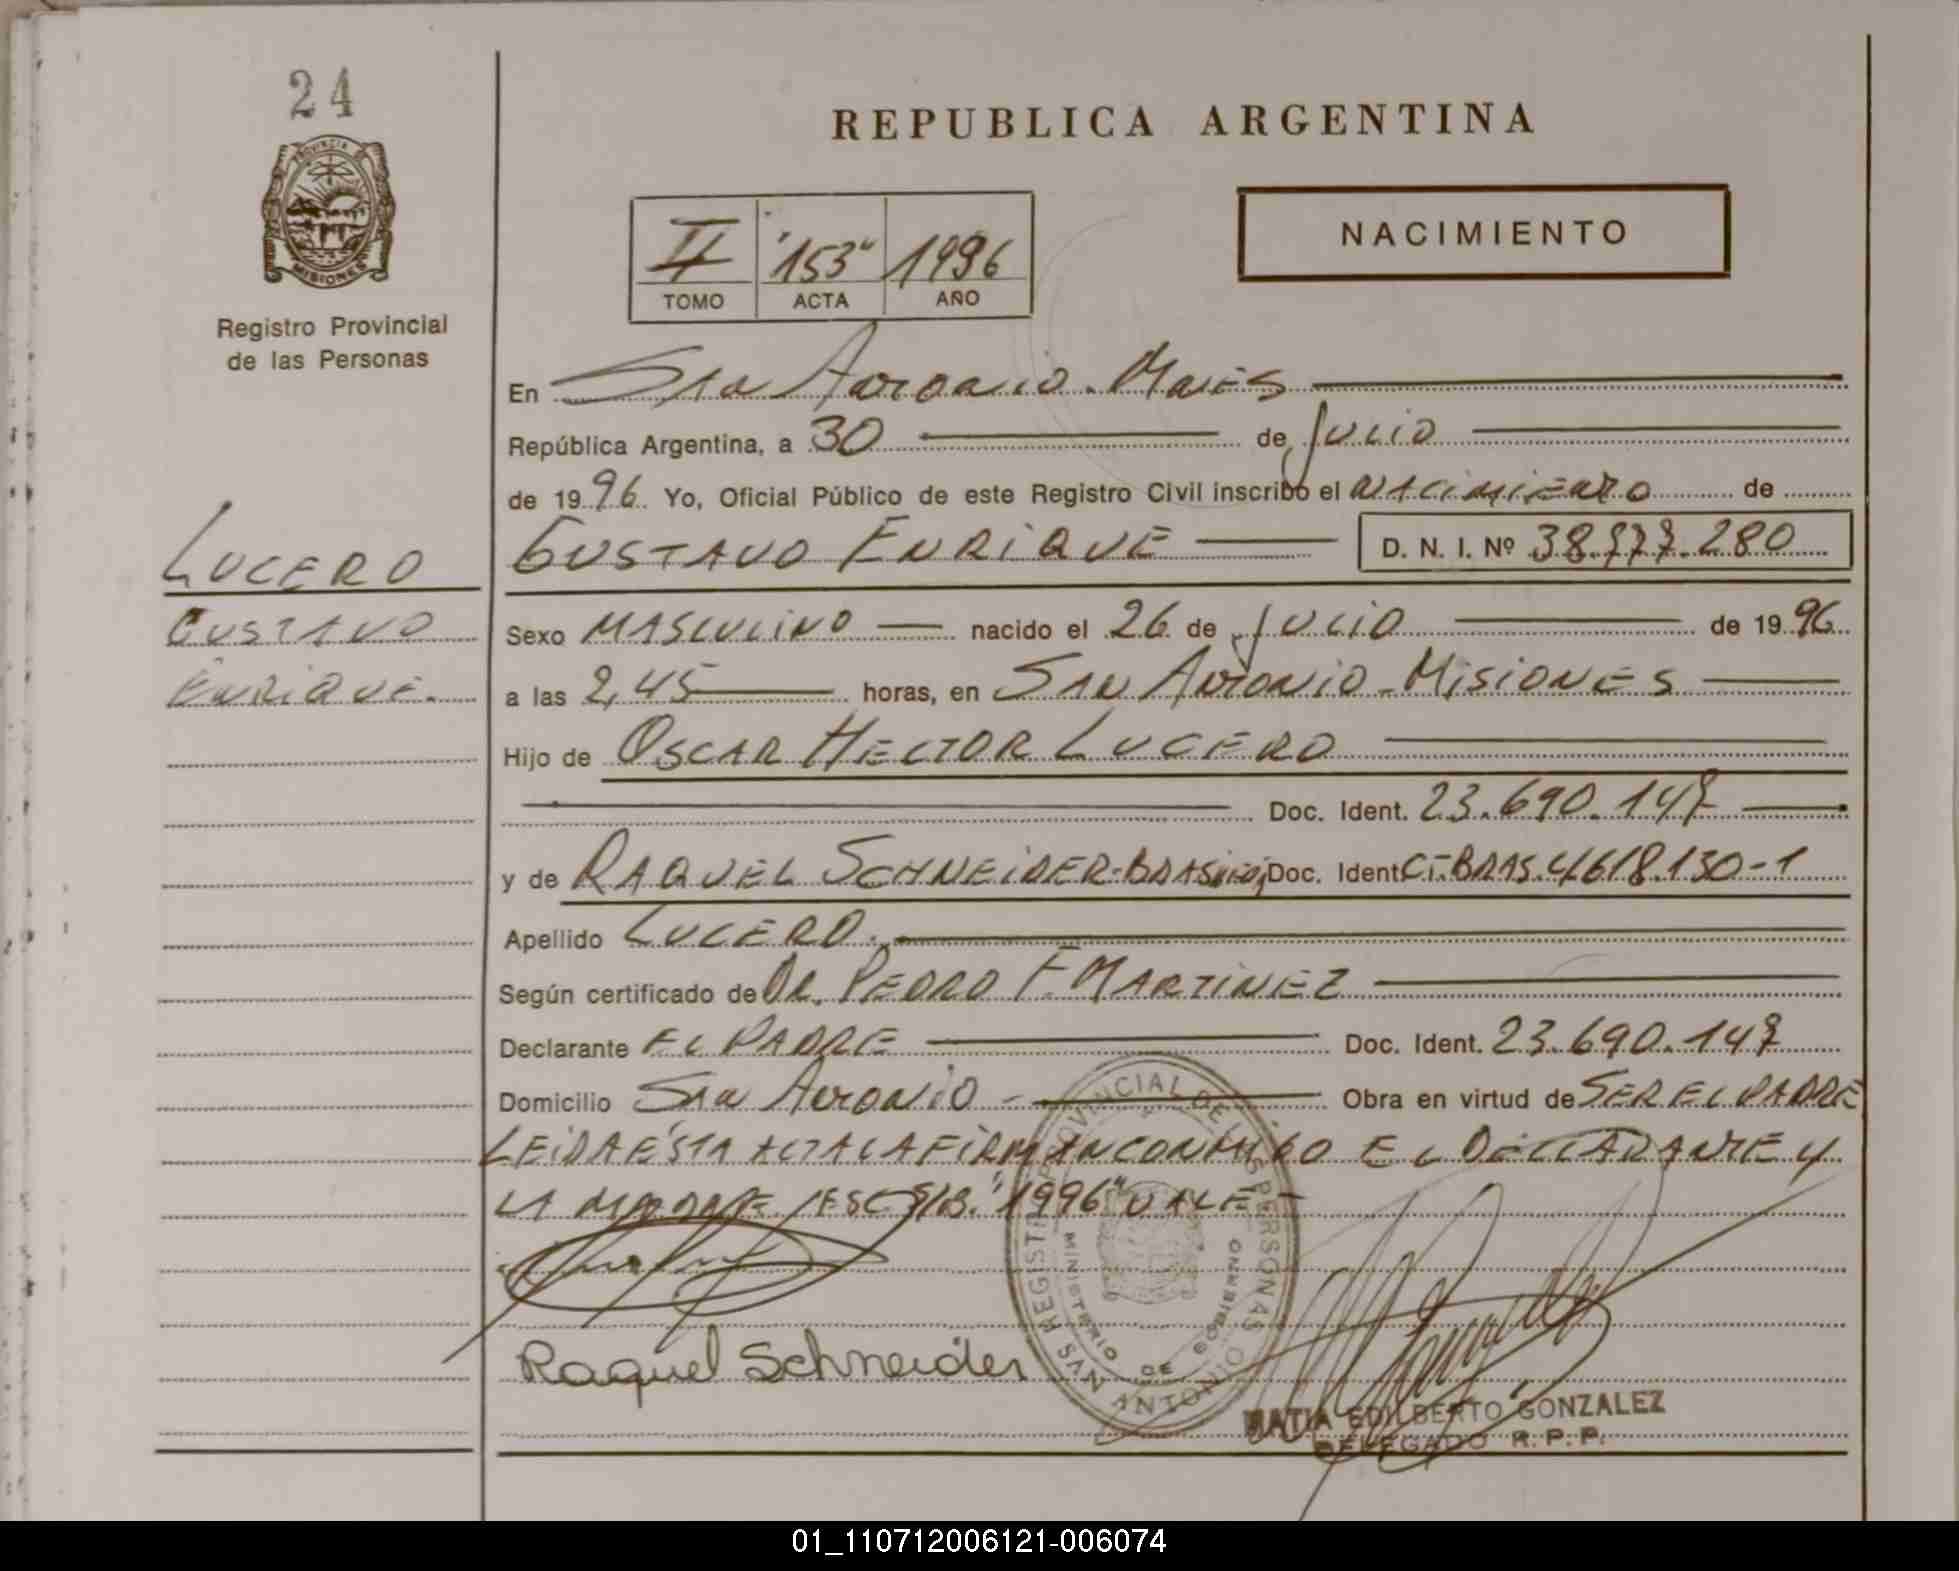 24
REPUBLICA ARGENTINA
PROVINCIA DE
MISIONES
Registro Provincial
de las Personas
NACIMIENTO
II "153" 1996
TOMO ACTA AÑO
En San Antonio. Mnes
República Argentina, a 30 de Julio
de 1996. Yo, Oficial Público de este Registro Civil inscribo el NACIMIENTO de
LUCERO
GUSTAVO
ENRIQUE.
GUSTAVO ENRIQUE D. N. I. Nº 38.777.280
Sexo MASCULINO nacido el 26 de JULIO de 1996
a las 2,45 horas, en SAN ANTONIO - MISIONES
Hijo de OSCAR HECTOR LUCERO
Doc. Ident. 23.690.147
y de RAQUEL SCHNEIDER- Doc. Ident. CI-BRAS.4618.130-1
Apellido LUCERO.
Según certificado de DR. PEDRO F. MARTINEZ
Declarante EL PADRE Doc. Ident. 23.690.147
Domicilio SAN ANTONIO - Obra en virtud de SER EL PADRE
LEIDA ESTA ACTA LA FIRMAN CONMIGO EL DECLARANTE Y
LA MADRE /ESC S/B. "1996" VALE -
Raquel Schneider
REGISTRO PROVINCIAL DE LAS PERSONAS
MINISTERIO DE GOBIERNO
SAN ANTONIO
MATIA EDILBERTO GONZALEZ
DELEGADO R. P. P.
01_110712006121-006074